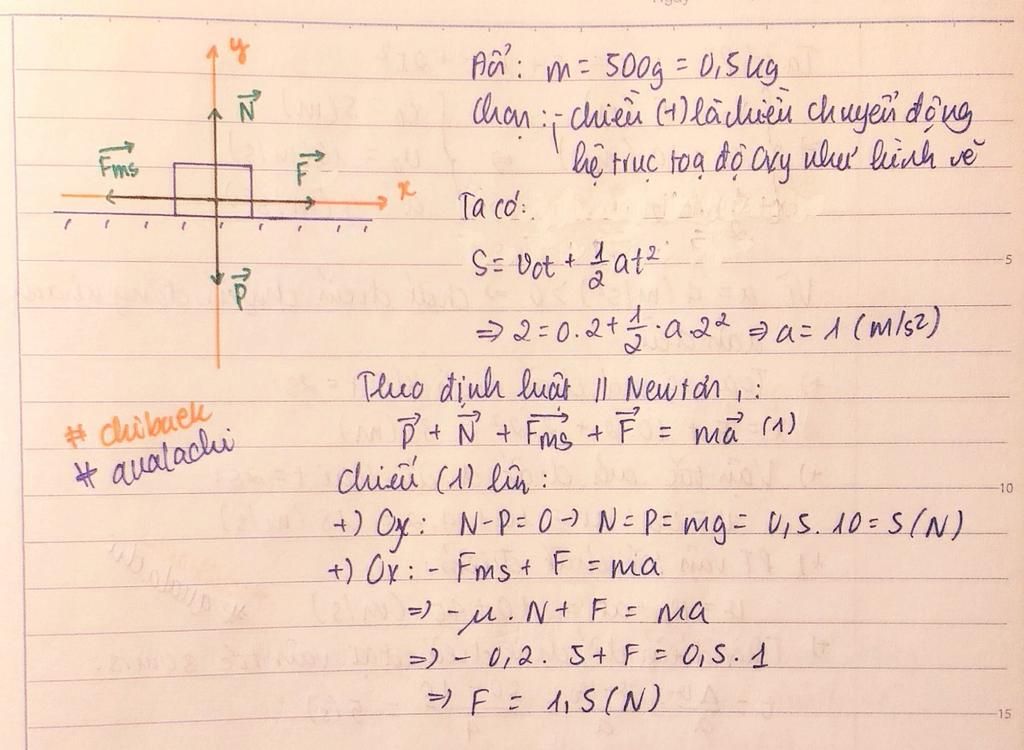 y
N
Fms
F
x
P
Đổi: m = 500g = 0,5kg
Chọn: - chiều (+) là chiều chuyển động
hệ trục toạ độ Oxy như hình vẽ
Ta có:
S = v₀t + 1/2 at²
=> 2 = 0.2 + 1/2 . a.2² => a = 1 (m/s²)
Theo định luật II Newton, :
P + N + Fms + F = ma (1)
Chiếu (1) lên:
+) Oy: N - P = 0 -> N = P = mg = 0,5.10 = 5 (N)
+) Ox: - Fms + F = ma
=> - μ . N + F = ma
=> - 0,2. 5 + F = 0,5.1
=> F = 1,5 (N)
# chibaek
# avalachi
5
10
15